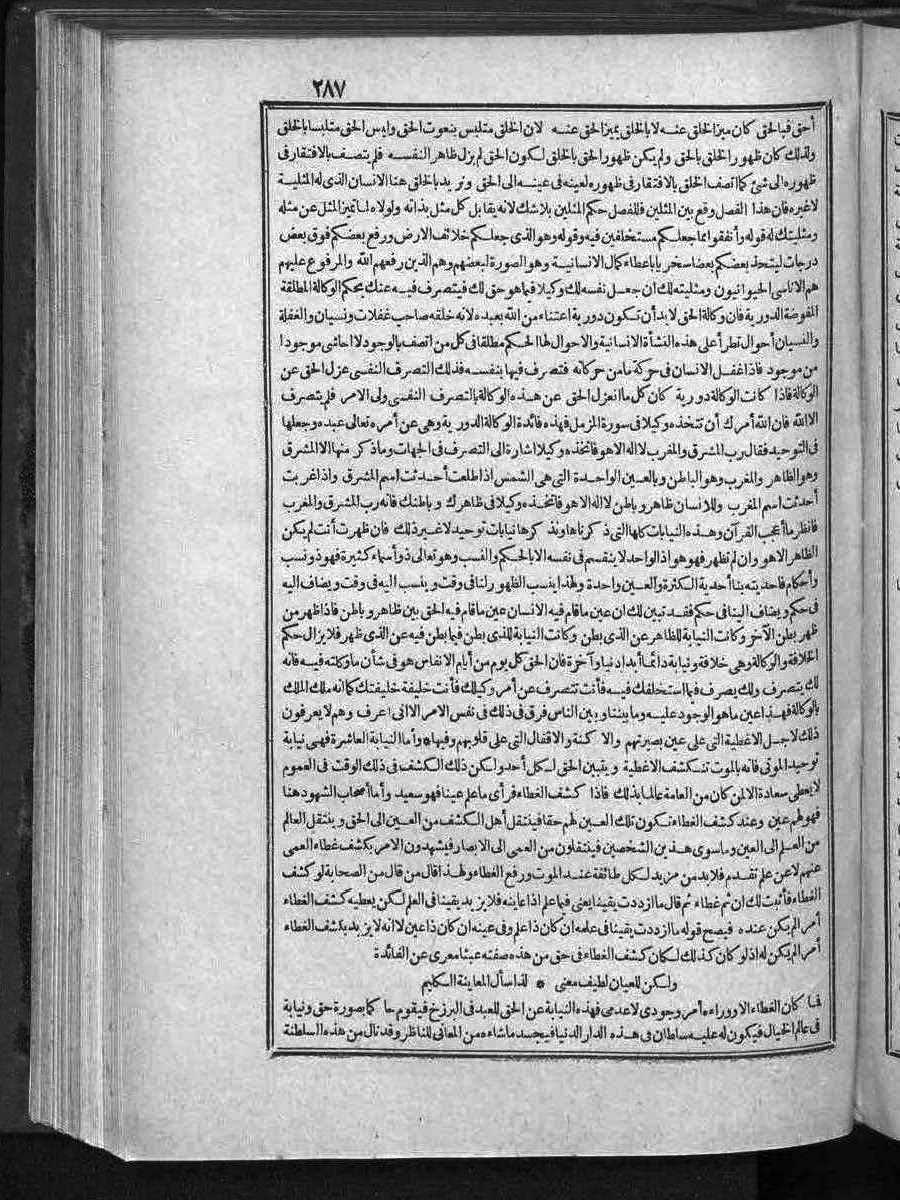 ٢٨٧
أحق فبالحق كان ميز الخلق عنه لا بالخلق يميز الحق عنه لان الخلق متلبس بنعوت الحق وليس الحق متلبسا بالخلق
ولذلك كان ظهور الخلق بالحق ولم يكن ظهور الحق بالخلق لكون الحق لم يزل ظاهر النفسه فلم يتصف بالافتقار فى
ظهوره الى شئ كما اتصف الخلق بالافتقار فى ظهوره لعينه فى عينه الى الحق ونريد بالخلق هنا الانسان الذى له المثلية
لا غيره فان هذا الفصل وقع بين المثلين فللفصل حكم المثلين بلا شك لانه يقابل كل مثل بذاته ولولاه لما تميز المثل عن مثله
ومثليتك له قوله وأنفقوا مما جعلكم مستخلفين فيه وقوله وهو الذى جعلكم خلائف الارض ورفع بعضكم فوق بعض
درجات ليتخذ بعضكم بعضا سخريا باعطاء كمال الانسانية وهو الصورة لبعضهم وهم الذين رفعهم الله والمرفوع عليهم
هم الاناسى الحيوانيون ومثليته لك ان جعل نفسه لك وكيلا فيما هو حق لك فيتصرف فيه عنك بحكم الوكالة المطلقة
المفوضة الدورية فان وكالة الحق لا بد أن تكون دورية اعتناء من الله بعبده لانه خلقه صاحب غفلات ونسيان والغفلة
والنسيان أحوال تطرأ على هذه النشأة الانسانية والاحوال لها الحكم مطلقا فى كل من اتصف بالوجود لا احاشى موجودا
من موجود فاذا غفل الانسان فى حركة ما من حركاته فتصرف فيها بنفسه فذلك التصرف النفسى عزل الحق عن
الوكالة فاذا كانت الوكالة دورية كان كل ما انعزل الحق عن هذه الوكالة بالتصرف النفسى ولى الامر فلم يتصرف
الا الله فان الله أمرك أن تتخذه وكيلا فى سورة المزمل فهذه فائدة الوكالة الدورية وهى عن أمره تعالى عبده وجعلها
فى التوحيد فقال رب المشرق والمغرب لا اله الا هو فاتخذه وكيلا اشارة الى التصرف فى الجهات وما ذكر منها الا المشرق
وهو الظاهر والمغرب وهو الباطن وبالعين الواحدة التى هى الشمس اذا طلعت أحدثت اسم المشرق واذا غربت
أحدثت اسم المغرب وللانسان ظاهر وباطن لا اله الا هو فاتخذه وكيلا فى ظاهرك وباطنك فانه رب المشرق والمغرب
فانظر ما أعجب القرآن وهذه النيابات كلها التى ذكرناها ونذكرها نيابات توحيد لا غير ذلك فان ظهرت أنت لم يكن
الظاهر الا هو وان لم تظهر فهو هو اذ الواحد لا ينقسم فى نفسه الا بالحكم والنسب وهو تعالى ذو أسماء كثيرة فهو ذو نسب
وأحكام فاحديته بنا أحدية الكثرة والعين واحدة ولهذا ينسب الظهور لنا فى وقت وينسب اليه فى وقت ويضاف اليه
فى حكم ويضاف الينا فى حكم فقد تبين لك ان عين ما قام فيه الانسان عين ما قام فيه الحق بين ظاهر وباطن فاذا ظهر من
ظهر بطن الآخر وكانت النيابة للظاهر عن الذى بطن وكانت النيابة للذى بطن فيما بطن فيه عن الذى ظهر فلا يزال حكم
الخلافة والوكالة وهى خلافة ونيابة دائما أبدا دنيا وآخرة فان الحق كل يوم من أيام الانفاس هو فى شأن ما وكلته فيه فانه
لك يتصرف ولك يصرف فيما استخلفك فيه فأنت تتصرف عن أمر وكيلك فأنت خليفة خليفتك كما انه ملك الملك
بالوكالة فهذا عين ما هو الوجود عليه وما بيننا وبين الناس فرق فى ذلك فى نفس الامر الا انى أعرف وهم لا يعرفون
ذلك لاجل الاغطية التى على عين بصيرتهم والاكنة والاقفال التى على قلوبهم وفيها * وأما النيابة العاشرة فهى نيابة
توحيد الموتى فانه بالموت تنكشف الاغطية ويتبين الحق لكل أحد ولكن ذلك الكشف فى ذلك الوقت فى العموم
لا يعطى سعادة الا لمن كان من العامة عالما بذلك فاذا كشف الغطاء فرأى ما علم عينا فهو سعيد وأما أصحاب الشهود هنا
فهو لهم عين وعند كشف الغطاء تكون تلك العين لهم حقا فينتقل أهل الكشف من العين الى الحق وينتقل العالم
من العلم الى العين وما سوى هذين الشخصين فينتقلون من العمى الى الابصار فيشهدون الامر بكشف غطاء العمى
عنهم لا عن علم تقدم فلا بد من مزيد لكل طائفة عند الموت ورفع الغطاء ولهذا قال من قال من الصحابة لو كشف
الغطاء فأثبت لك ان ثم غطاء ثم قال ما ازددت يقينا يعنى فيما علم اذا عاينه فلا يزيد يقينا فى العلم لكن يعطيه كشف الغطاء
أمرا لم يكن عنده فيصح قوله ما ازددت يقينا فى علمه ان كان ذا علم وفى عينه ان كان ذا عين لا انه لا يزيد بكشف الغطاء
أمرا لم يكن له اذ لو كان كذلك لكان كشف الغطاء فى حق من هذه صفته عبثا معرى عن الفائدة
ولكن للعيان لطيف معنى * لذا سأل المعاينة الكليم
فما كان الغطاء الا ووراءه أمر وجودى لا عدمى فهذه النيابة عن الحق للعبد فى البرزخ فيقوم حاكما بصورة حق ونيابة
فى عالم الخيال فيكون له عليه سلطان فى هذه الدار الدنيا فيجسد ما شاء من المعانى للناظر وقد نال من هذه السلطنة